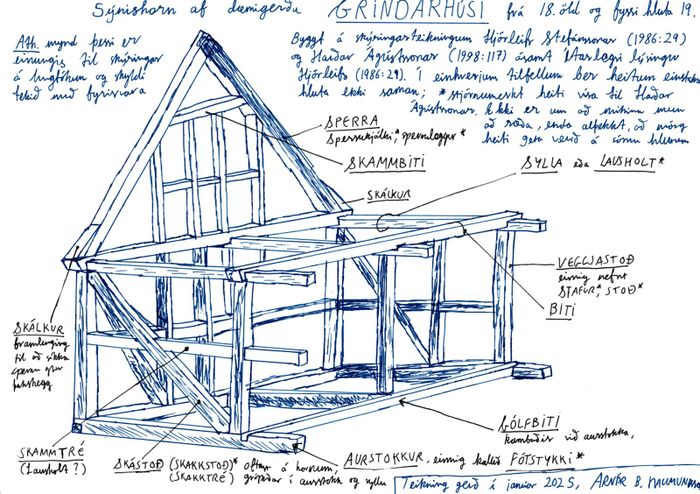 Sýnishorn af dæmigerðu GRINDARHÚSI frá 18. öld og fyrri hluta 19.
Ath. mynd þessi er
einungis til skýringar
á hugtökum og skyldi
tekið með fyrirvara
Byggt á skýringarteikningum Hjörleifs Stefánssonar (1986:29)
og Harðar Ágústssonar (1998:117) ásamt ítarlegri lýsingu
Hjörleifs (1986:29). Í einhverjum tilfellum ber heitum einstakra
hluta ekki saman; * stjörnumerkt heiti vísa til Harðar
Ágústssonar. Ekki er um að
að ræða, enda alþekkt, að mörg
heiti geta verið á sömu hlutum
SPERRA
Sperrukjálki*, sperruleggur*
SKAMMBITI
SKÁLKUR
SYLLA eða LAUSHOLT*
VEGGJASTOÐ
einnig nefnt
STAFUR*, STOÐ*
BITI
SKÁLKUR
framlenging
til að
sperran yfir
þakskegg
SKAMMTRÉ
(Lausholt?)
SKÁSTOÐ (SKAKKSTOÐ)* oftar á hornum,
(SKAKKTRÉ) grópaðar í aurstokk og syllu
GÓLFBITI
við aurstokka,
AURSTOKKUR, einnig kallað FÓTSTYKKI*
Teikning gerð í janúar 2025, ARNAR B.